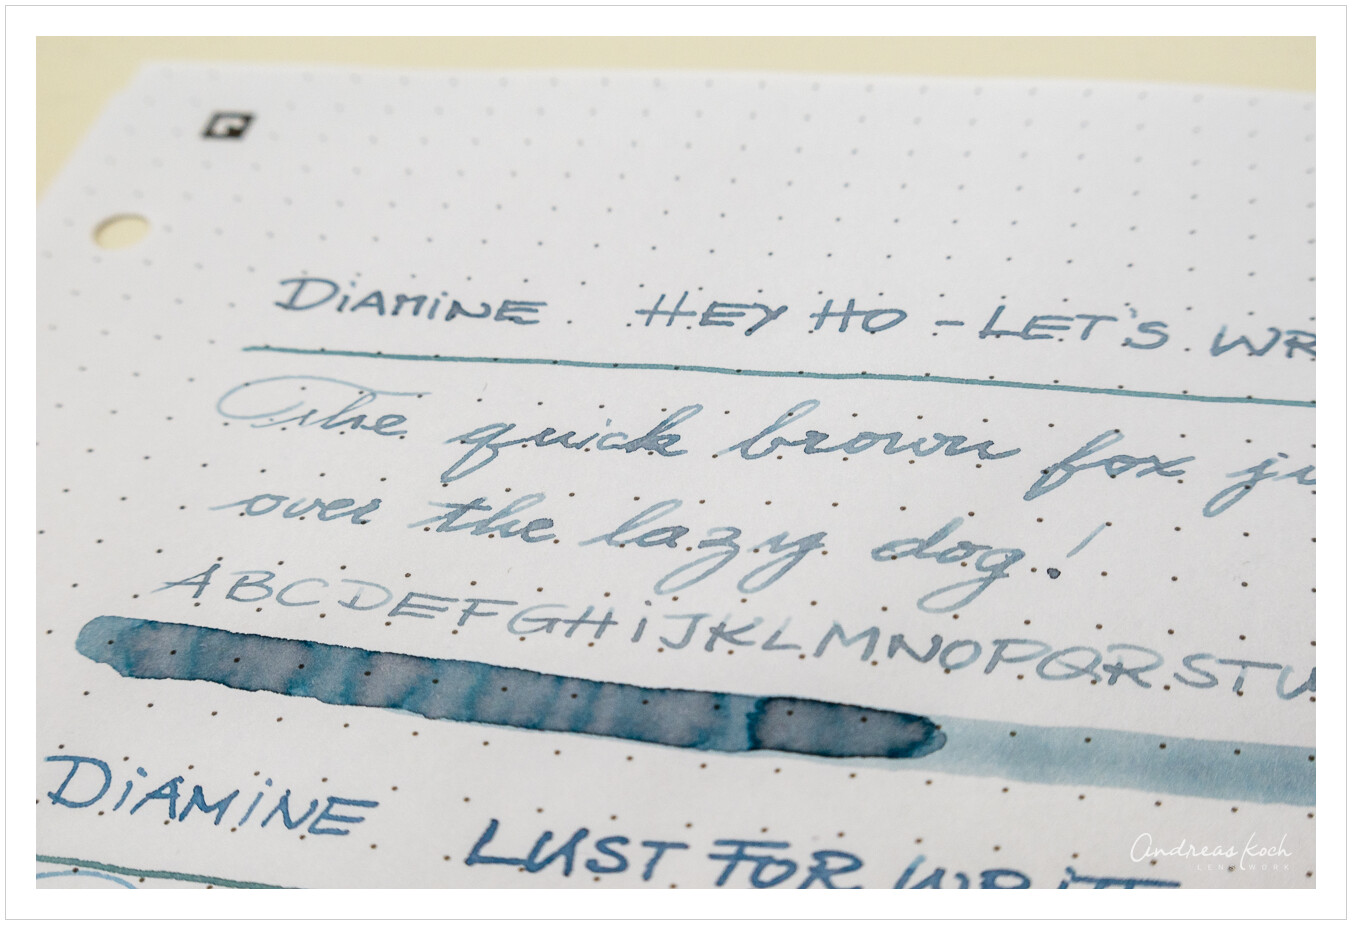 DiAMiNE HEY HO - LET'S WR
The quick brown fox ju
over the lazy dog!
ABCDEFGHiJKLMNOPQRSTU
DiAMiNE LUST FOR WRITE
Andreas Koch